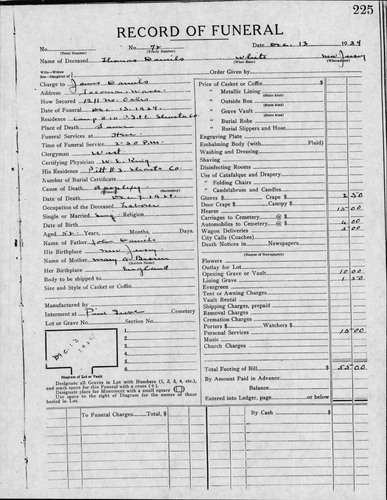 225
RECORD OF FUNERAL
No. No. 72 Date Dec. 13 1934
(Total Number) (Yearly Number)
Name of Deceased Thomas Daniels White New Jersey
(What Race) (Where born)
Wife—Widow
Son—Daughter of
Charge to James Daniels
Address Tacoma Wash.
How Secured
Date of Funeral Dec 13, 1934.
Residence
Place of Death Same
Funeral Services at Here
Time of Funeral Service 2:30 P.M.
Clergyman West
Certifying Physician W. E. King
His Residence
Number of Burial Certificate
Cause of Death Apoplexy
(Secondary)
Date of Death
Occupation of the Deceased Laborer
Single or Married Religion
Date of Birth
Aged Years, Months, Days.
Name of Father John Daniels
His Birthplace New Jersey
Name of Mother Mary A.
(Maiden Name)
Her Birthplace England
Body to be shipped to
Size and Style of Casket or Coffin
Manufactured by
Interment at Pine Cemetery
Lot or Grave No. Section No.
1.
2.
3.
4.
5.
6.
Diagram of Lot or Vault
Designate all Graves in Lot with Numbers (1, 2, 3, 4, etc.),
and mark space for this Funeral with a cross (+).
Designate place for Monument with a small square
Use space to the right of Diagram for the names of those
buried in Lot.
Order Given by
Price of Casket or Coffin $
" Metallic Lining
(State kind)
" Outside Box
(State kind)
" Grave Vault
(State kind)
" Burial Robe
(State kind)
" Burial Slippers and Hose
Engraving Plate
Embalming Body (with Fluid)
Washing and Dressing
Shaving
Disinfecting Rooms
Use of Catafalque and Drapery
" Folding Chairs
" Candelabrum and Candles
Gloves $ Crape $ 2 50
Door Crape $ Canopy $
Hearse 15 00
Carriages to Cemetery @ $
Automobiles to Cemetery @ $ 6 00
Wagon Deliveries 5 00
City Calls (Coaches)
Death Notices in Newspapers
(Names of Newspapers)
Flowers
Outlay for Lot
Opening Grave or Vault 10 00
Lining Grave 1 50
Evergreen
Tent or Awning Charges
Vault Rental
Shipping Charges, prepaid
Removal Charges
Cremation Charges
Porters $ Watchers $
Personal Services 15 00
Music
Church Charges
Total Footing of Bill $ 55 00
By Amount Paid in Advance
Balance
Entered into Ledger, page or below.
To Funeral Charges Total, $
By Cash $